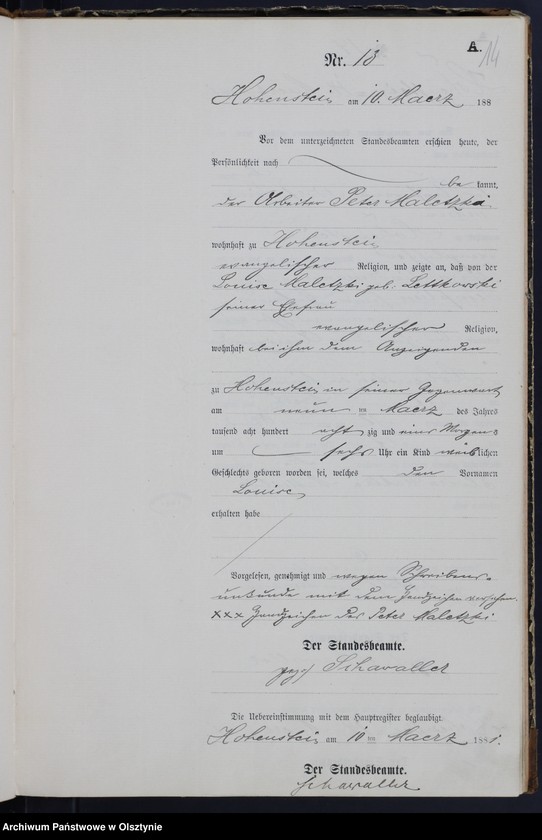 A.
14
Nr. 13
Hohenstein am 10. Maerz 188
Vor dem unterzeichneten Standesbeamten erschien heute, der
Persönlichkeit nach
be kannt,
der Arbeiter Peter Maletzki
wohnhaft zu Hohenstein
evangelischer Religion, und zeigte an, daß von der
Louise Maletzki geb. Lettkowski
seiner Ehefrau
evangelischer Religion,
wohnhaft bei ihm dem Anzeigenden
zu Hohenstein in seiner Gegenwart
am neun ten Maerz des Jahres
tausend acht hundert acht zig und eins Morgens
um sechs Uhr ein Kind weiblichen
Geschlechts geboren worden sei, welches den Vornamen
Louise
erhalten habe
Vorgelesen, genehmigt und wegen Schreibens-
unkunde mit dem Handzeichen versehen.
xxx Handzeichen des Peter Maletzki
Der Standesbeamte.
gez. Schawaller
Die Uebereinstimmung mit dem Hauptregister beglaubigt
Hohenstein am 10 ten Maerz 1881.
Der Standesbeamte.
Schawaller
Archiwum Państwowe w Olsztynie